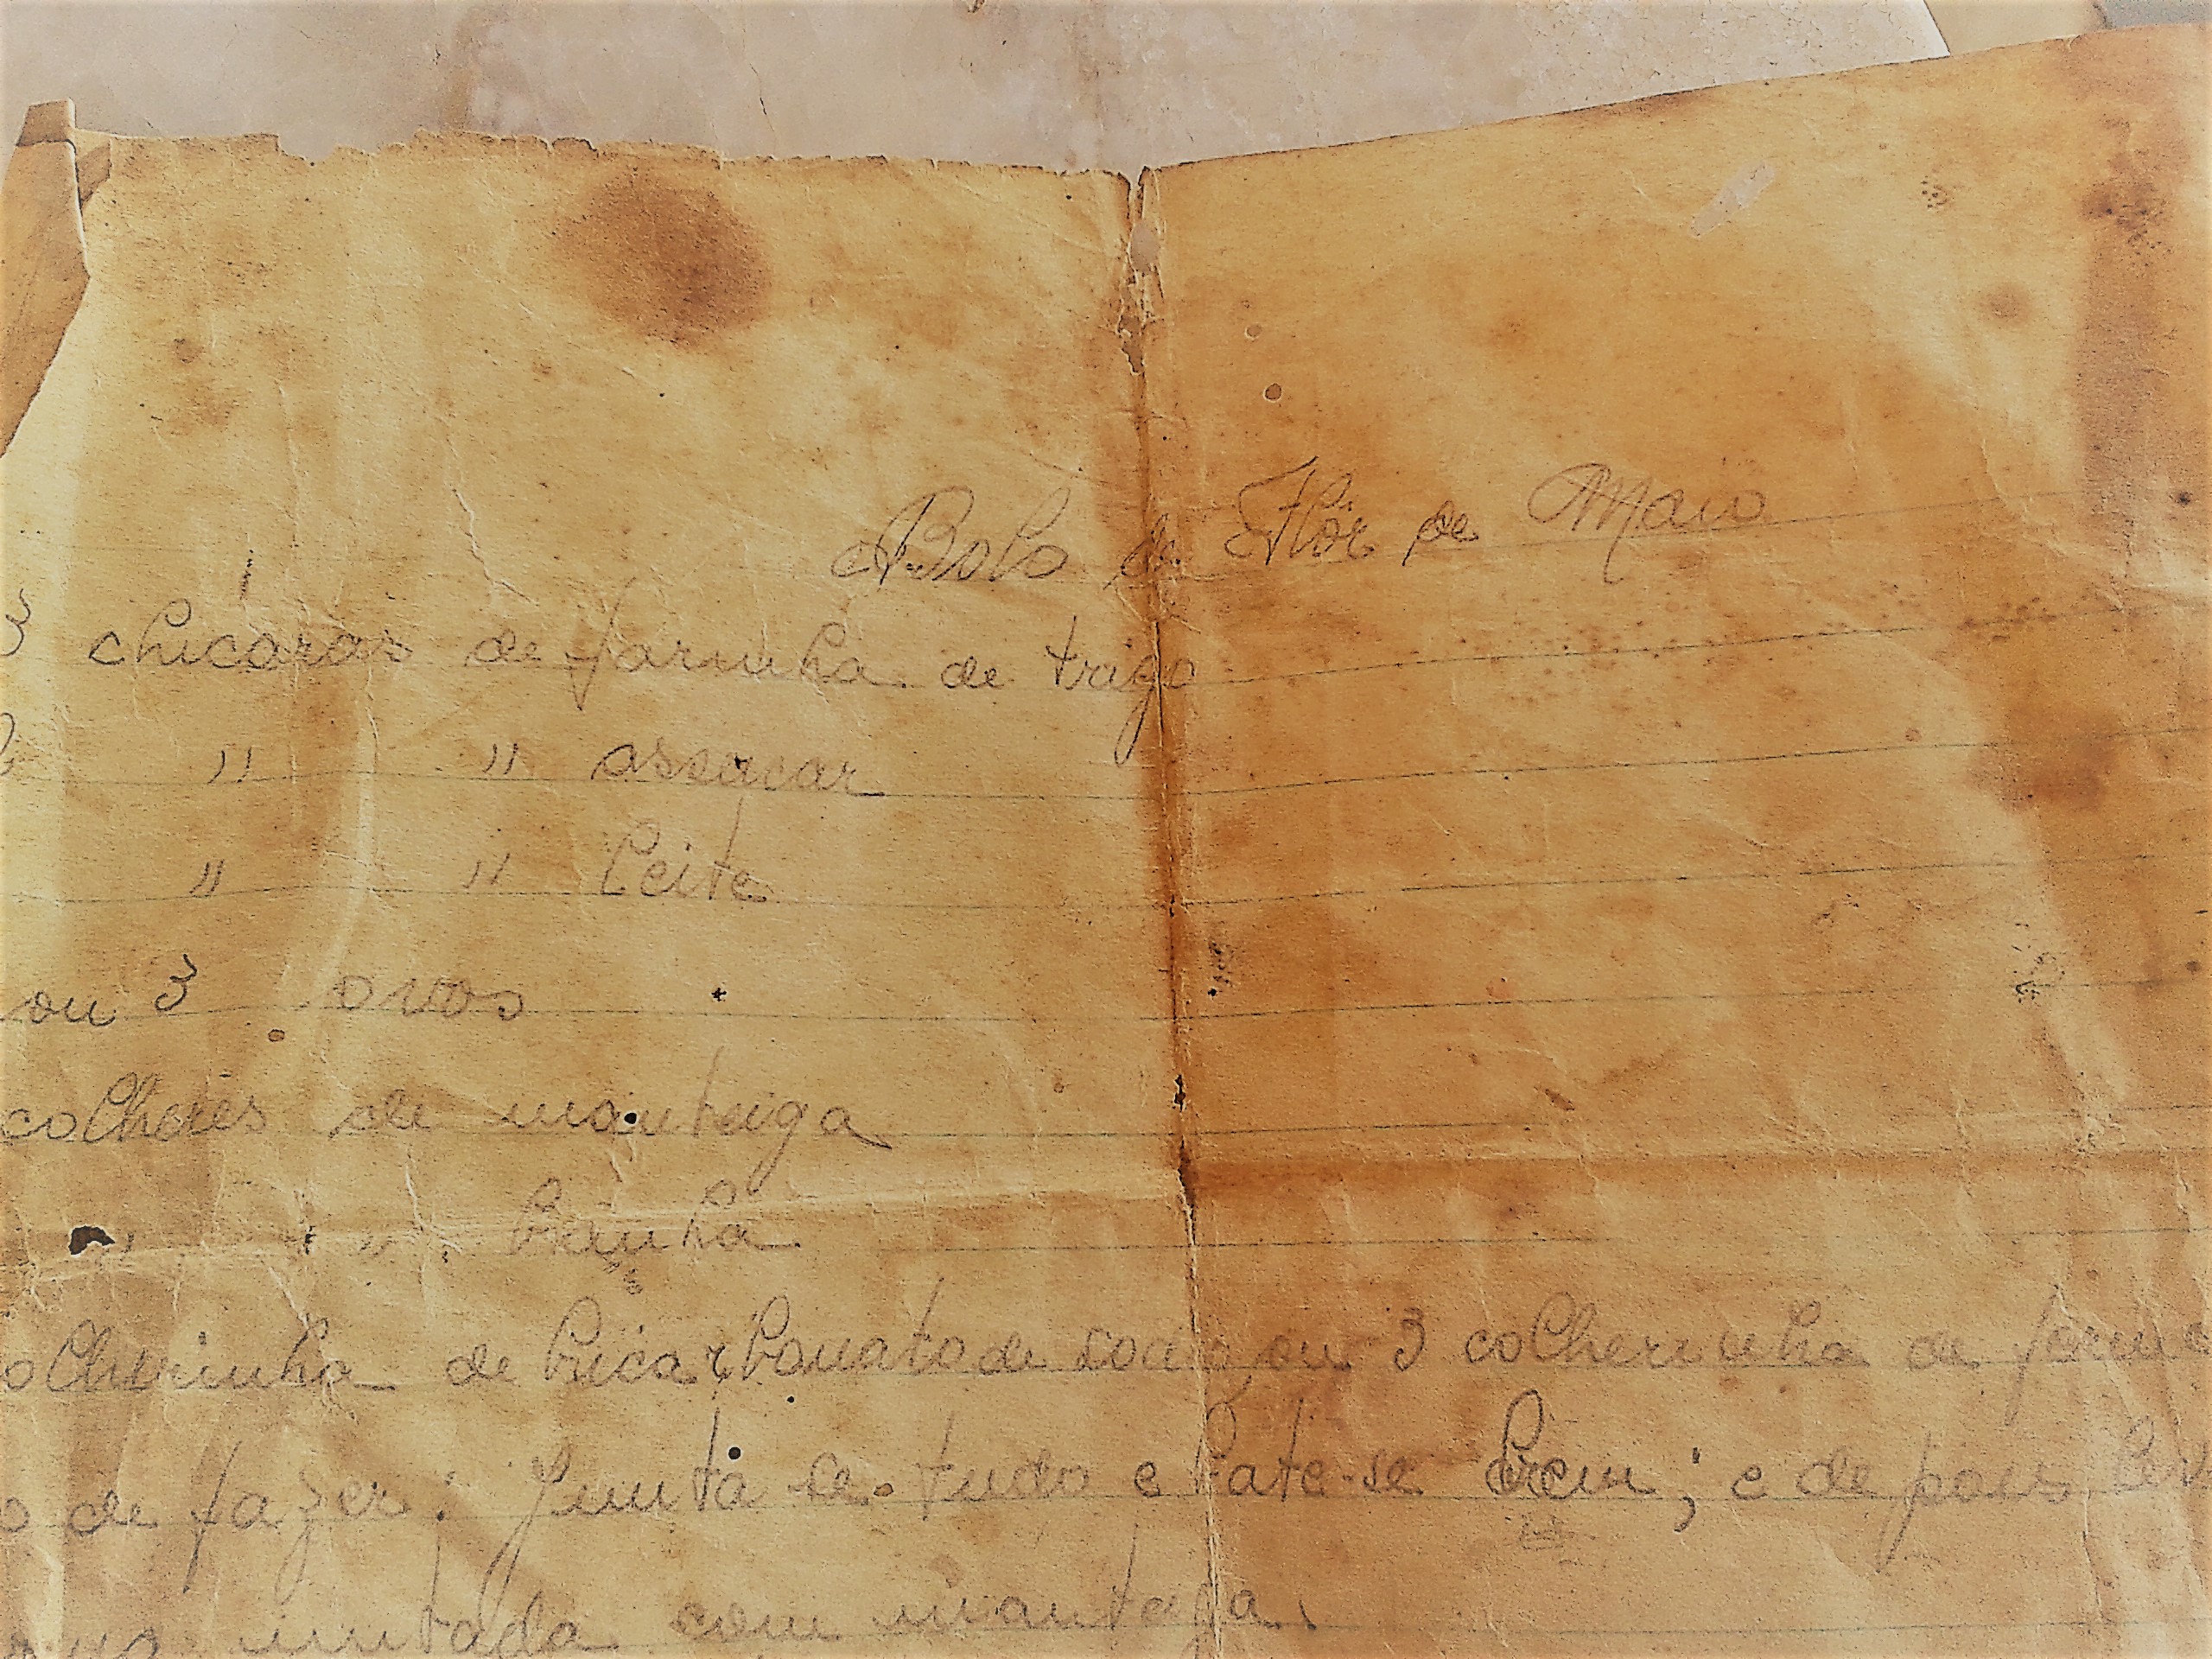 Bolo de Flôr de Maio
3 chicaras de farinha de trigo
" " assucar
" " Leite
ou 3 ovos
colheres de manteiga
" " banha
olherinha de bicarbonato de sodio, ou 3 colherinha de ferme
o de fazer: Junta-se tudo e bate-se bem; e de pois
untada com manteiga.